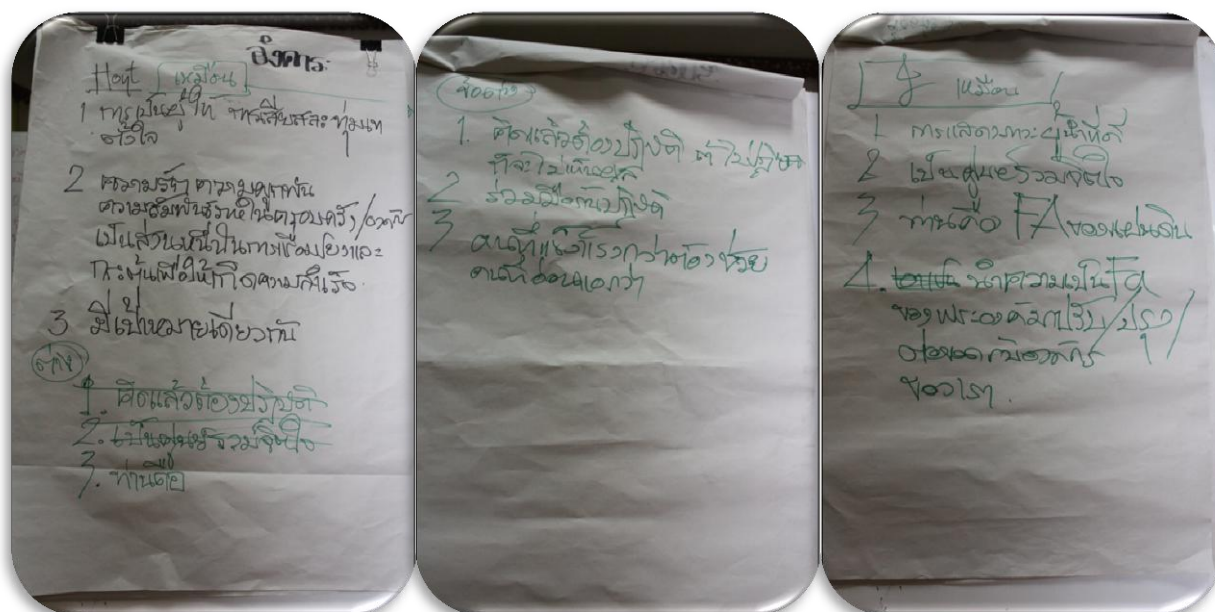 อังคาร
เหมือน
1 การเป็นผู้ให้ การเสียสละ ทุ่มเท
ตั้งใจ
2 ความรัก ความผูกพัน
ความสัมพันธ์ภายในครอบครัว/องค์กร
เป็นส่วนหนึ่งในการเชื่อมโยงและ
กระตุ้นเพื่อให้เกิดความสำเร็จ
3 มีเป้าหมายเดียวกัน
ต่าง
1. คิดแล้วต้องปฏิบัติ
2. เป็นศูนย์รวมจิตใจ
3. ท่านคือ
ข้อต่าง
1. คิดแล้วต้องปฏิบัติ ถ้าไม่ปฏิบัติ
ก็จะไม่เห็นผล
2 ร่วมมือกันปฏิบัติ
3 คนที่แข็งแรงกว่าต้องช่วย
คนที่อ่อนแอกว่า
เหมือน
1 การแสดงภาวะผู้นำที่ดี
2 เป็นศูนย์รวมจิตใจ
3 ท่านคือ FA ของแผ่นดิน
4. นำความเป็น Fa
ของพระองค์มาปรับ/ปรุง/
ต่อยอดกับองค์กร
ของเรา.